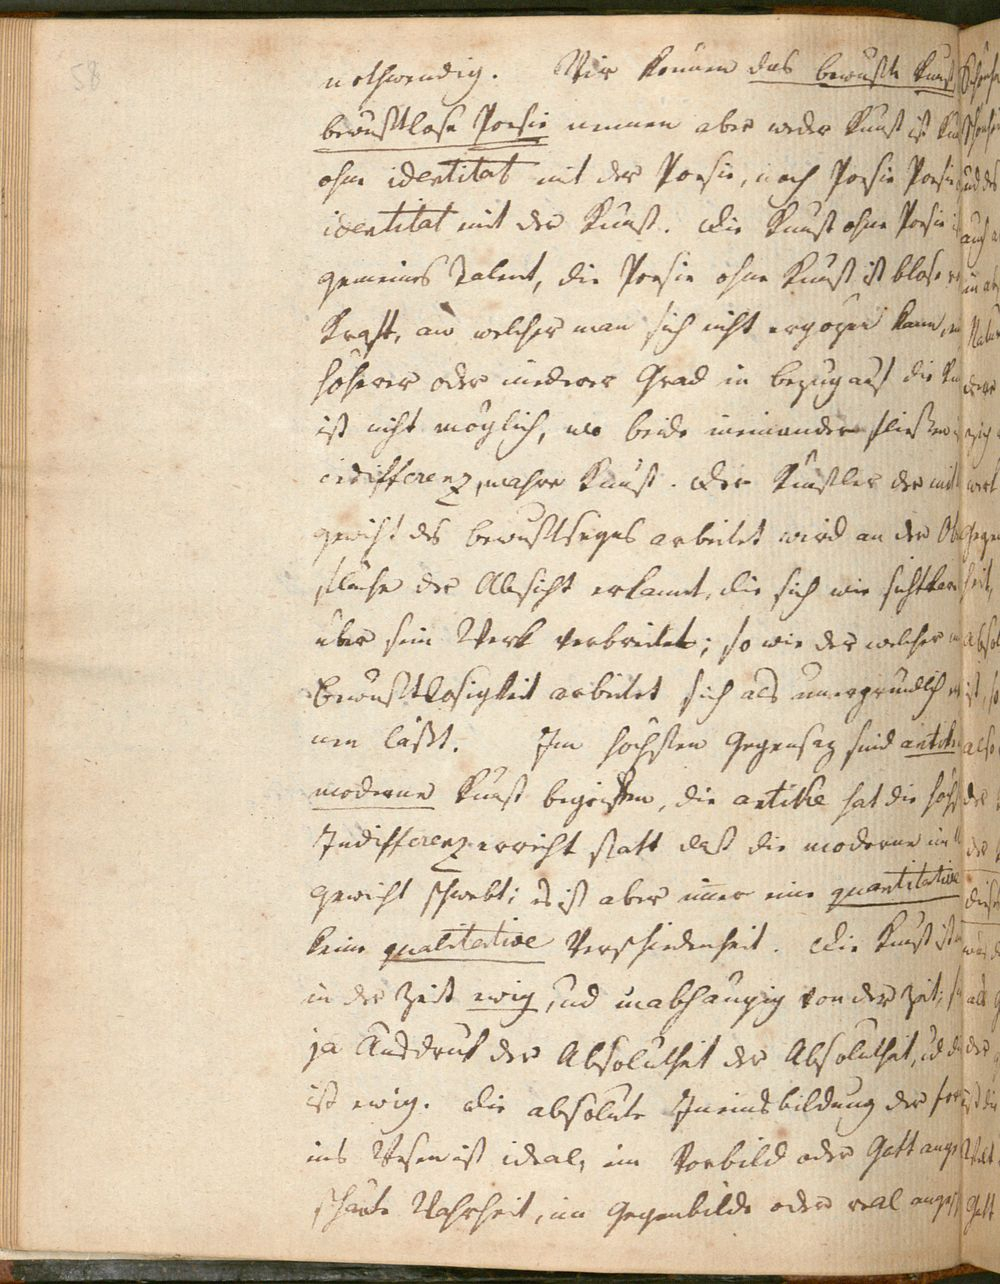 58
nothwendig. Wir können das bewußte Kunst
bewußtlose Poesie nennen aber weder Kunst ist
ohne identitat mit der Poesie, noch Poesie Poesie
identitat mit der Kunst. Die Kunst ohne Poesie
gemeines Talent, die Poesie ohne Kunst ist blose
Kraft, an welcher man sich nicht ergözen kann,
höherer oder niederer Grad in bezug auf die
ist nicht möglich, wo beide ineinander fließen
indifferenz, wahre Kunst. Der Künstler der mit
gewicht des bewustseyns arbeitet wird an der Ob
fläche der Absicht erkannt, die sich wie sichtbar
über sein Werk verbreitet; so wie der welcher
Bewußtlosigkeit arbeitet sich als unergründlich
nen läßt. Im höchsten Gegensaz sind antike
moderne Kunst begriffen, die antike hat die höchs
Indifferenz erreicht statt daß die moderne im
gewicht schwebt; es ist aber imer eine quantitative
keine qualitative Verschiedenheit. Die Kunst ist
in der Zeit ewig und unabhängig von der Zeit;
ja Ausdruk der Absolutheit der Absolutheit, und
ist ewig. Die absolute Ineinsbildung der
ins Wesen ist ideal, im Vorbild oder Gott ange
schaute Wahrheit, im Gegenbilde oder real ange